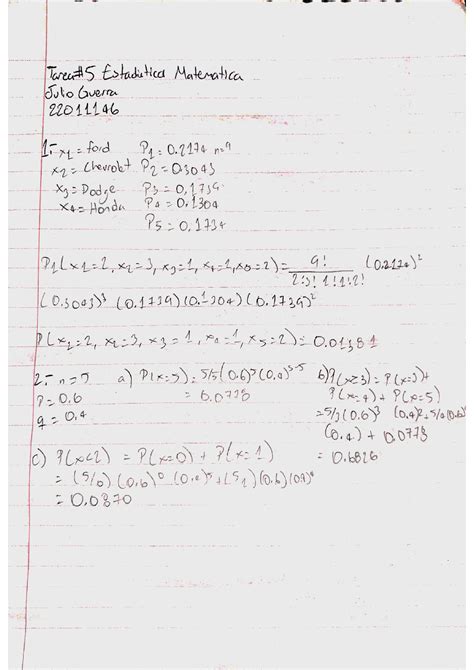 Tarea#5 Estadistica Matematica
Julio Guerra
22011146
1.- x1 = ford P1 = 0.2174 n=9
x2 = Chevrolet P2 = 0.3043
x3 = Dodge P3 = 0.1739
x4 = Honda P4 = 0.1304
P5 = 0.1739
P1(x1=2, x2=3, x3=1, x4=1, x5=2) = 9! / 2!3!1!1!2! (0.2174)²
(0.3043)³ (0.1739)(0.1304)(0.1739)²
P(x1=2, x2=3, x3=1, x4=1, x5=2) = 0.01381
2.- n=5 a) P(x=5) = 5/5 (0.6)⁵ (0.4)⁵⁻⁵ b) P(x≥3) = P(x=3)+
P=0.6 = 0.0778 P(x=4) + P(x=5)
q=0.4 = 5/3 (0.6)³ (0.4)² + 5/4 (0.6)
(0.4) + 0.0778
c) P(x<2) = P(x=0) + P(x=1) = 0.6826
= (5/0) (0.6)⁰ (0.4)⁵ + (5 1) (0.6) (0.4)⁴
= 0.0870